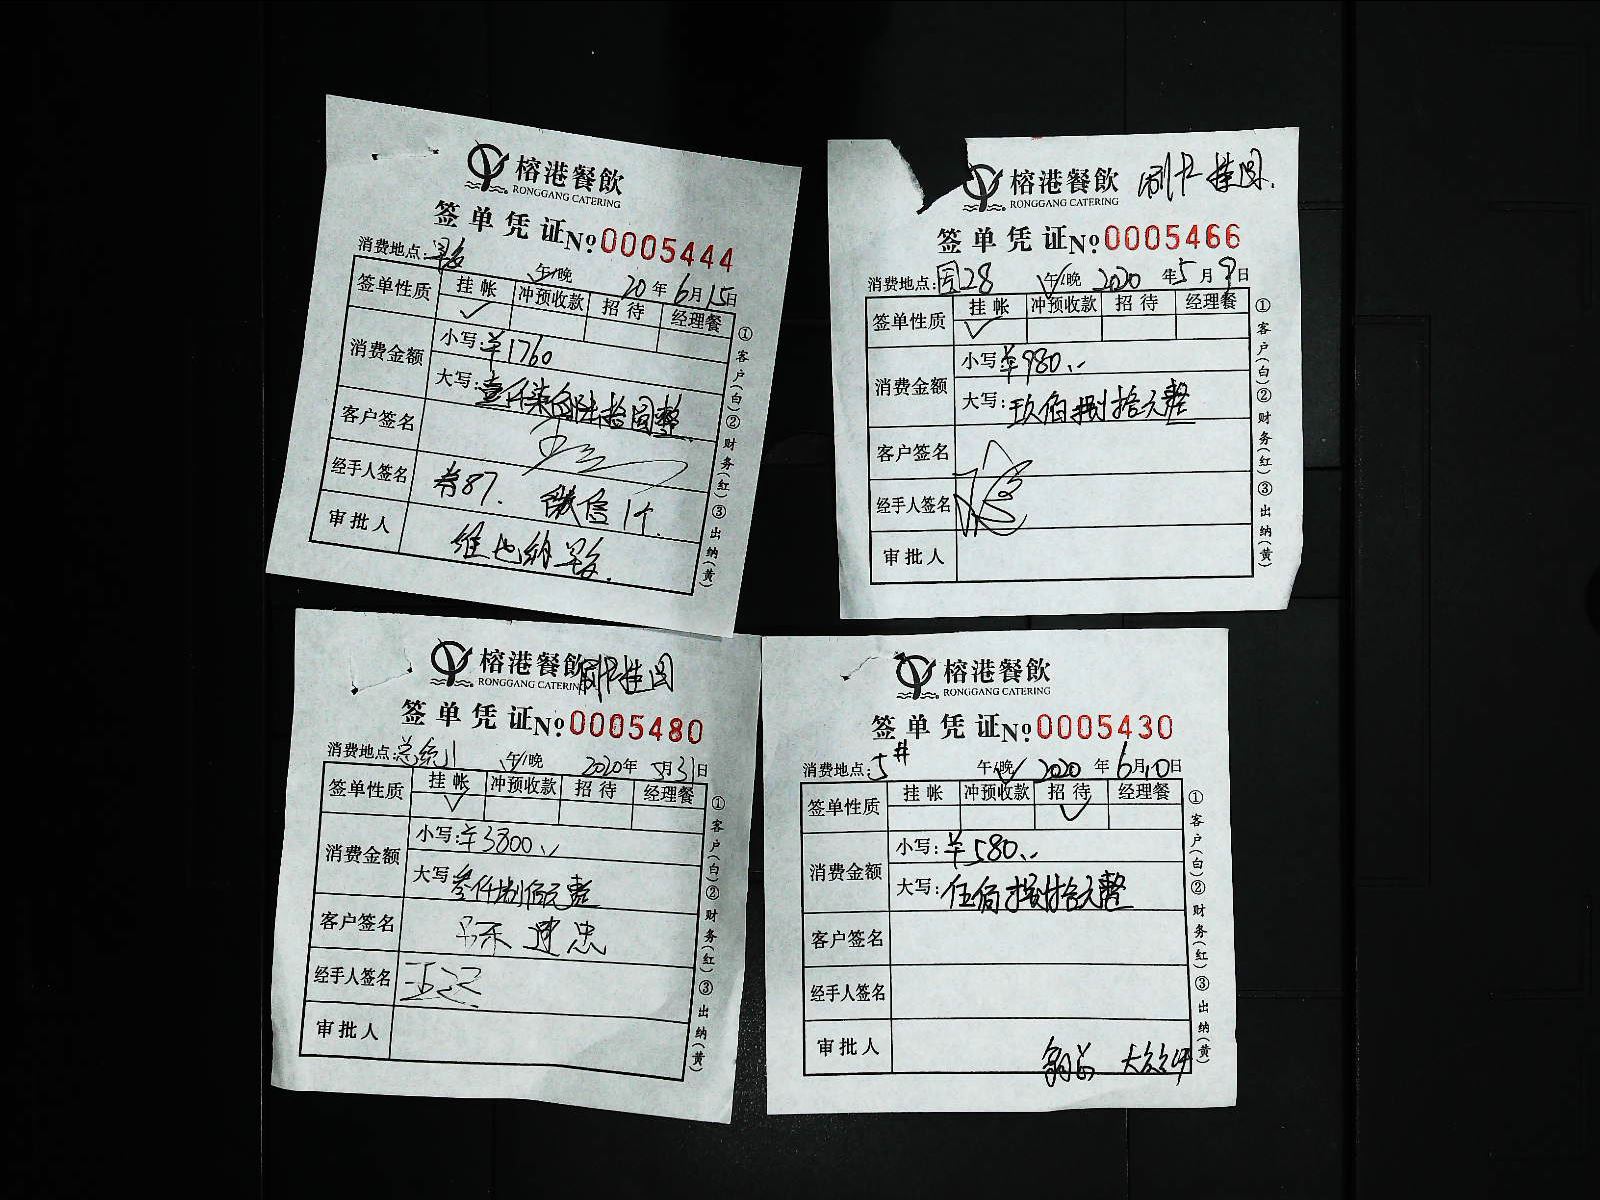 榕港餐飲
RONGGANG CATERING
签单凭证 No 0005444
消费地点:
午/晚 20年6月15日
签单性质 挂帐 冲预收款 招待 经理餐
消费金额 小写:¥1760
大写:壹仟柒佰陆拾圆整
客户签名
经手人签名 券87. 微信1个.
审批人 维也纳
①客户(白)②财务(红)③出纳(黄)
榕港餐飲 刷卡挂图.
RONGGANG CATERING
签单凭证 No 0005466
消费地点:周28 午/晚 2020年5月9日
签单性质 挂帐 冲预收款 招待 经理餐
消费金额 小写:¥980.--
大写:玖佰捌拾元整
客户签名
经手人签名
审批人
①客户(白)②财务(红)③出纳(黄)
榕港餐飲 刷卡挂图
RONGGANG CATERING
签单凭证 No 0005480
消费地点:总统 午/晚 2020年5月31日
签单性质 挂帐 冲预收款 招待 经理餐
消费金额 小写:¥3800.--
大写:叁仟捌佰元整
客户签名 建忠
经手人签名
审批人
①客户(白)②财务(红)③出纳(黄)
榕港餐飲
RONGGANG CATERING
签单凭证 No 0005430
消费地点:5# 午/晚 2020年6月10日
签单性质 挂帐 冲预收款 招待 经理餐
消费金额 小写:¥580.--
大写:伍佰捌拾元整
客户签名
经手人签名
审批人
①客户(白)②财务(红)③出纳(黄)